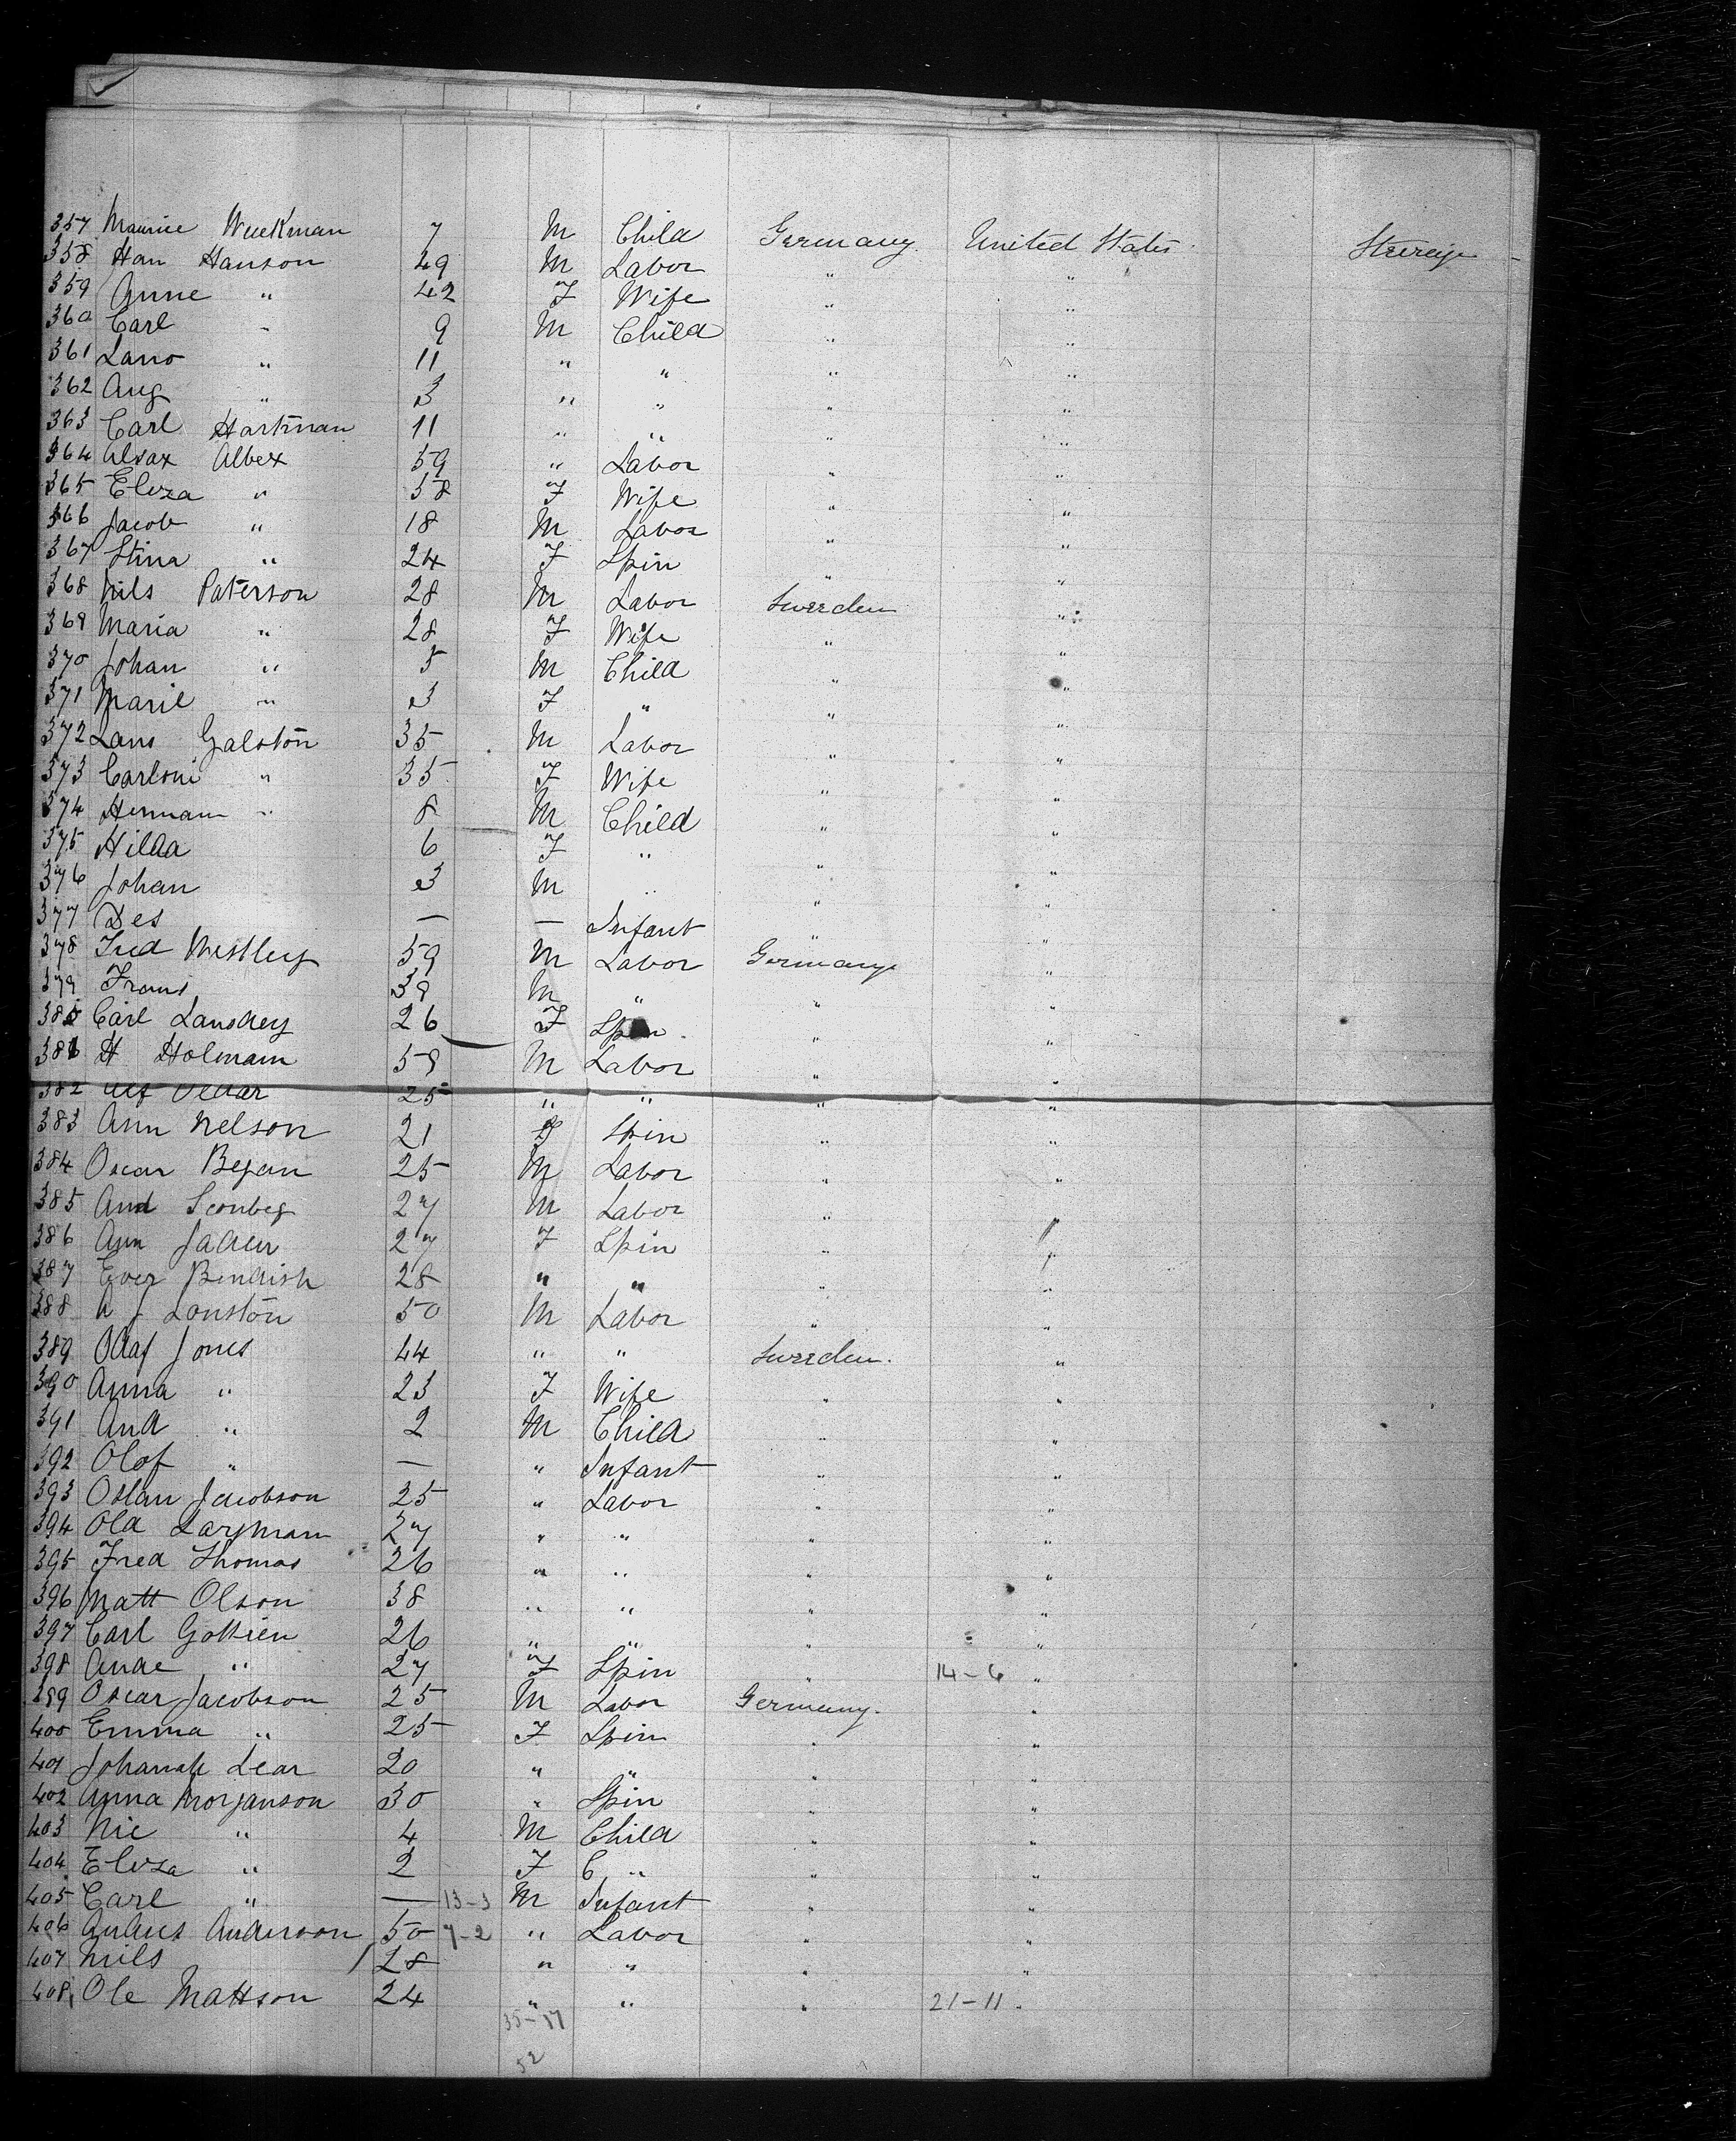 357 Maurice Wuekman 7 M Child Germany United States Steerige
358 Han Hanson 49 M Labor " "
359 Anne " 42 F Wife " "
360 Carl " 9 M Child " "
361 Lano " 11 " " " "
362 Aug " 3 " " " "
363 Carl Hartman 11 " " " "
364 Alsax Albex 59 " Labor " "
365 Eliza " 58 F Wife " "
366 Jacob " 18 M Labor " "
367 Stina " 24 F Spin " "
368 Nils Paterson 28 M Labor Sweeden "
369 Maria " 28 F Wife " "
370 Johan " 5 M Child " "
371 Marie " 3 F " " "
372 Lans Galston 35 M Labor " "
373 Carloni " 35 F Wife " "
374 Hermam " 8 M Child " "
375 Hilda 6 F " " "
376 Johan 3 M " " "
377 Des — — Infant " "
378 Fred Westley 59 M Labor Germany "
379 Frans 39 M " " "
380 Carl Lanskey 26 F Spin " "
381 H Holmam 58 M Labor " "
382 25 " " " "
383 Ann Nelson 21 F Spin " "
384 Oscar Began 25 M Labor " "
385 And Sconbeg 27 M Labor " "
386 Ann Jaden 27 F Spin " "
387 Ever Bendish 28 " " " "
388 A J Lonston 50 M Labor " "
389 Olaf Jones 44 " " Sweeden "
390 Anna " 23 F Wife " "
391 And " 2 M Child " "
392 Olof " — " Infant " "
393 Oslan Jacobson 25 " Labor " "
394 Old Laryman 27 " " "
395 Fred Thomas 26 " " " "
396 Matt Olson 38 " " " "
397 Carl Gottsien 26 " " " "
398 Anae " 27 F Spin " 14-6 "
399 Oscar Jacobson 25 M Labor Germany "
400 Emma " 25 F Spin " "
401 Johanah Lear 20 " " " "
402 Anna Morjanson 30 " Spin " "
403 Nic " 4 M Child " "
404 Eliza " 2 F C " " "
405 Carl " — 13-3 M Infant " "
406 Andus Anderson 50 7-2 " Labor " "
407 Nils 28 " " " "
408 Ole Mattson 24 " " " 21-11
35-17
52